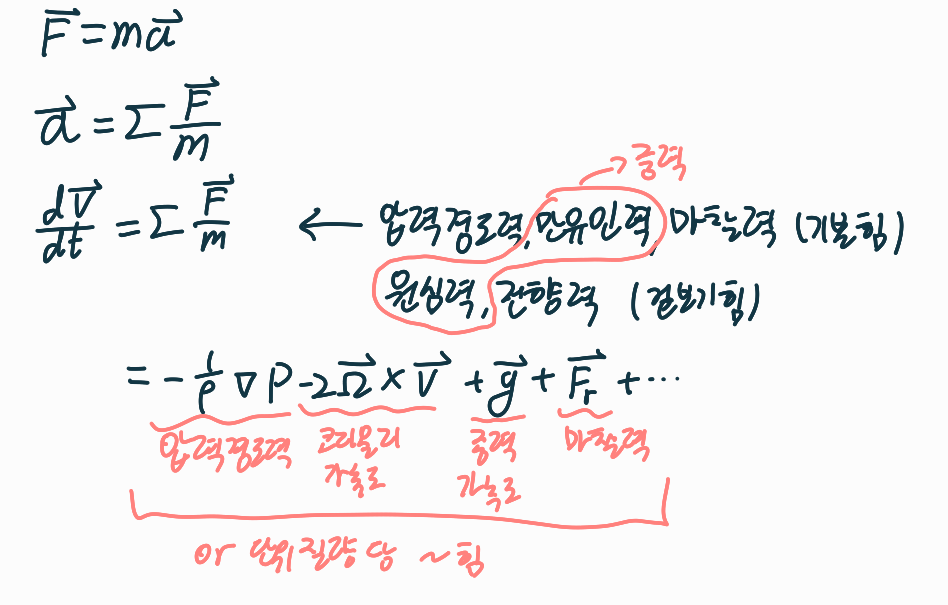 F⃗ = ma⃗
a⃗ = Σ F⃗/m
→ 중력
dV⃗/dt = Σ F⃗/m ← 압력경도력, 만유인력, 마찰력 (기본힘)
원심력, 전향력 (겉보기힘)
= -1/ρ ∇P -2Ω⃗ × V⃗ + g⃗ + F⃗r + ⋯
압력경도력 코리올리 중력 마찰력
가속도 가속도
or 단위질량 당 ~힘